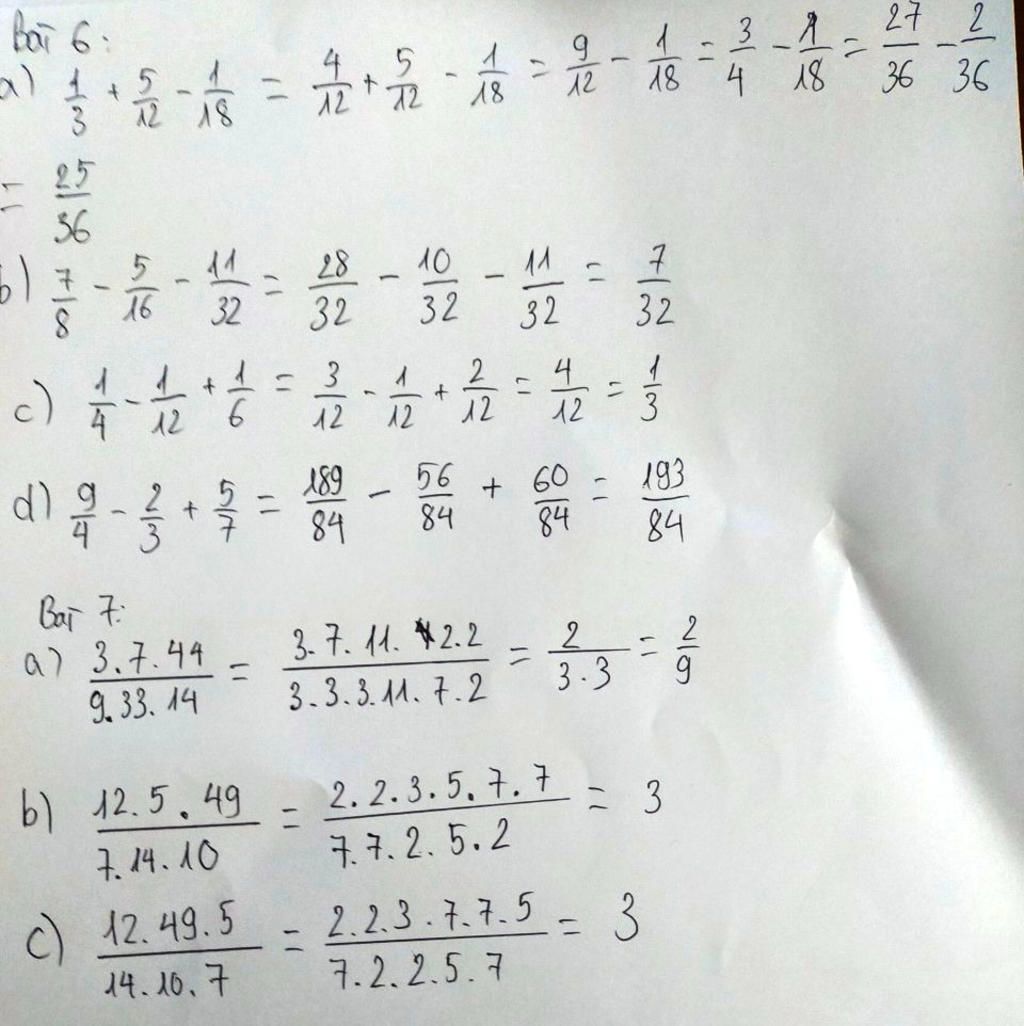 Bài 6:
a) 1/3 + 5/12 - 1/18 = 4/12 + 5/12 - 1/18 = 9/12 - 1/18 = 3/4 - 1/18 = 27/36 - 2/36
= 25/36
b) 7/8 - 5/16 - 11/32 = 28/32 - 10/32 - 11/32 = 7/32
c) 1/4 - 1/12 + 1/6 = 3/12 - 1/12 + 2/12 = 4/12 = 1/3
d) 9/4 - 2/3 + 5/7 = 189/84 - 56/84 + 60/84 = 193/84
Bài 7:
a) 3.7.44/9.33.14 = 3.7.11.2.2/3.3.3.11.7.2 = 2/3.3 = 2/9
b) 12.5.49/7.14.10 = 2.2.3.5.7.7/7.7.2.5.2 = 3
c) 12.49.5/14.10.7 = 2.2.3.7.7.5/7.2.2.5.7 = 3